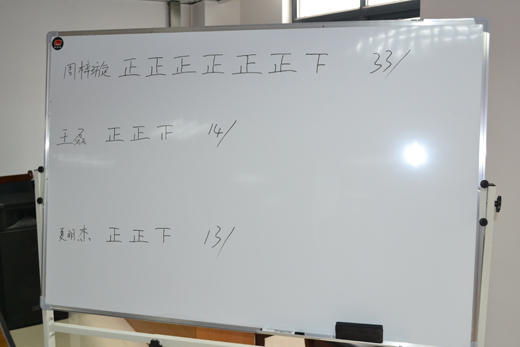 周梓旋 正正正正正正下 33/
王磊 正正下 14/
夏明杰 正正下 13/